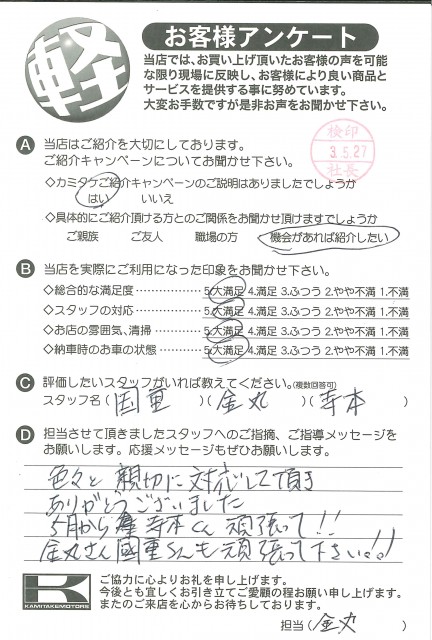 軽
お客様アンケート
当店では、お買い上げ頂いたお客様の声を可能
な限り現場に反映し、お客様により良い商品と
サービスを提供する事に努めています。
大変お手数ですが是非お声をお聞かせ下さい。
検印
3.5.27
社長
A 当店はご紹介を大切にしております。
ご紹介キャンペーンについてお聞かせ下さい。
◇カミタケご紹介キャンペーンのご説明はありましたでしょうか
はい いいえ
◇具体的にご紹介頂ける方とのご関係をお聞かせ頂けますでしょうか
ご親族 ご友人 職場の方 機会があれば紹介したい
B 当店を実際にご利用になった印象をお聞かせ下さい。
◇総合的な満足度 5.大満足 4.満足 3.ふつう 2.やや不満 1.不満
◇スタッフの対応 5.大満足 4.満足 3.ふつう 2.やや不満 1.不満
◇お店の雰囲気、清掃 5.大満足 4.満足 3.ふつう 2.やや不満 1.不満
◇納車時のお車の状態 5.大満足 4.満足 3.ふつう 2.やや不満 1.不満
C 評価したいスタッフがいれば教えてください。(複数回答可)
スタッフ名(国重)(金丸)(寺本)
D 担当させて頂きましたスタッフへのご指摘、ご指導メッセージを
お願いします。応援メッセージもぜひお願いします。
色々と親切に対応して頂き
ありがとうございました
5月から寺本くん頑張って!!
金丸さん国重さんも頑張って下さい。!!
K
KAMITAKEMOTORS
ご協力に心よりお礼を申し上げます。
今後とも宜しくお引き立てご愛顧の程お願い申し上げます。
またのご来店を心からお待ちしております。
担当(金丸)